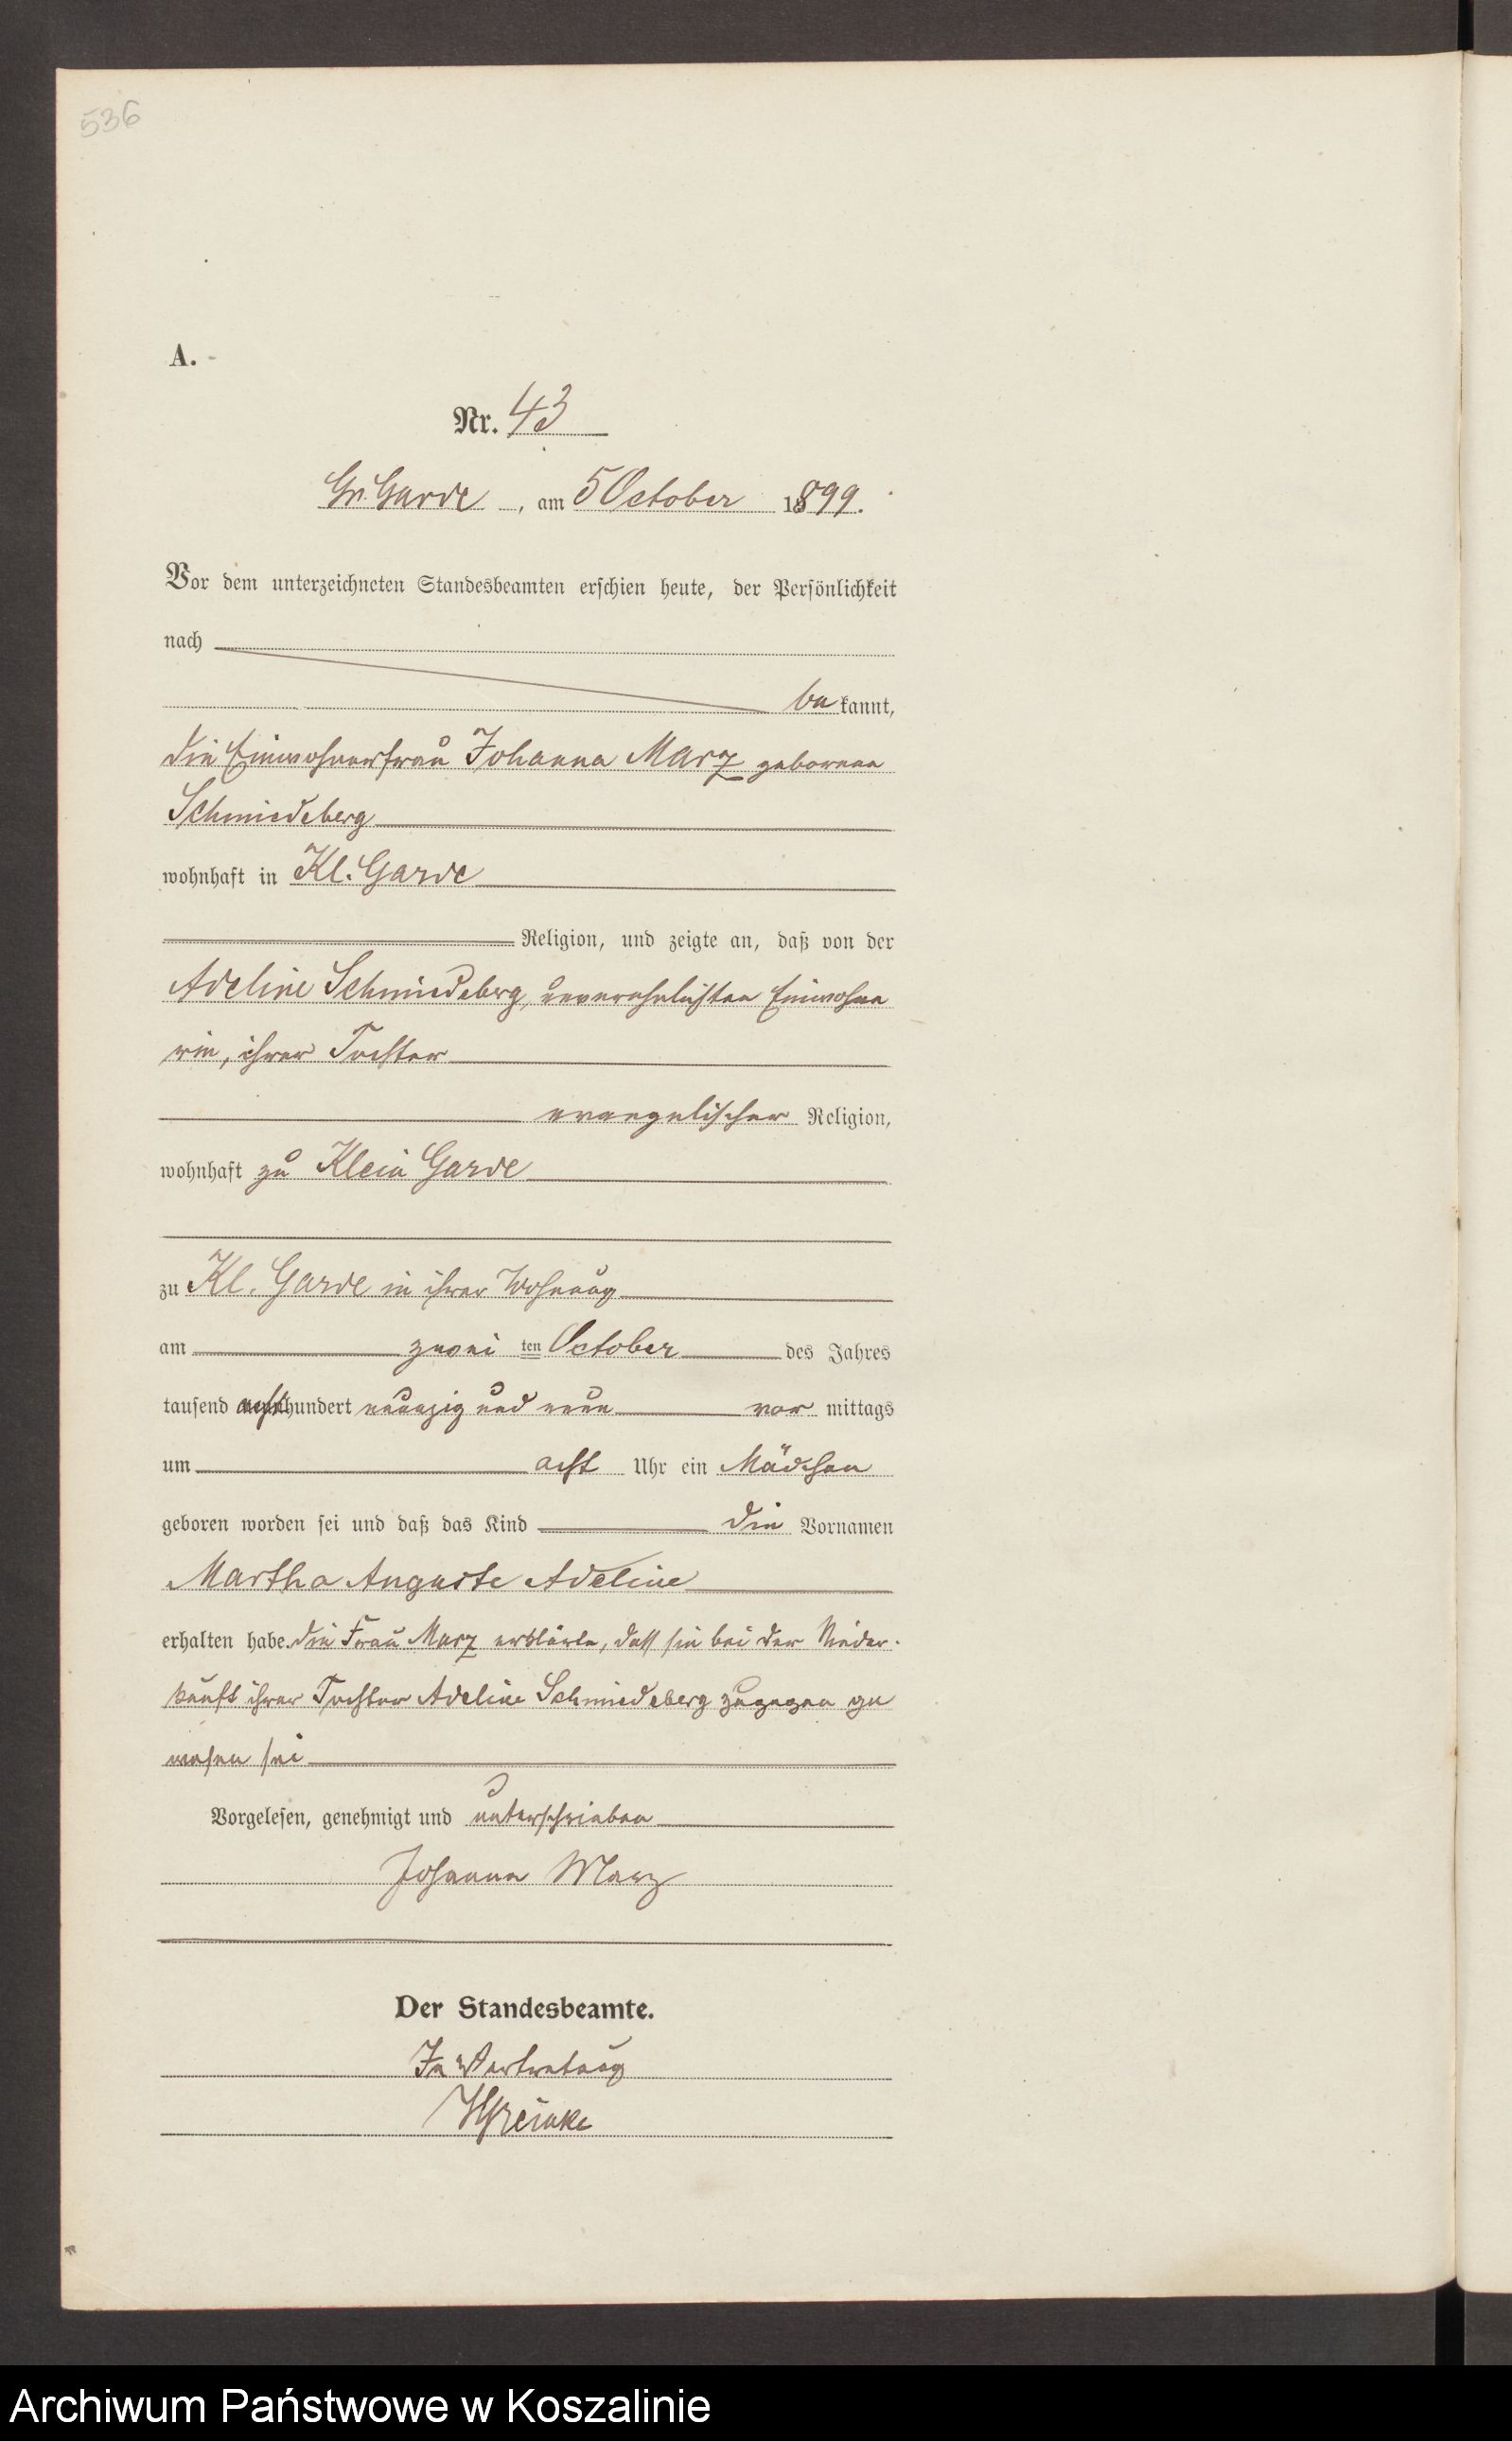 536
A.
Nr. 43
Gr. Garde, am 5 October 1899.
Vor dem unterzeichneten Standesbeamten erschien heute, der Persönlichkeit
nach
bekannt,
die Einwohnerfrau Johanna Marz geborene
Schmiedeberg
wohnhaft in Kl. Garde
Religion, und zeigte an, daß von der
Adeline Schmiedeberg, unverehelichten Einwohne
rin, ihrer Tochter
evangelischer Religion,
wohnhaft zu Klein Garde
zu Kl. Garde in ihrer Wohnung
am zwei ten October des Jahres
tausend achthundert neunzig und neun vor mittags
um acht Uhr ein Mädchen
geboren worden sei und daß das Kind die Vornamen
Martha Auguste Adeline
erhalten habe. Die Frau Marz erklärte, daß sie bei der Nieder-
kunft ihrer Tochter Adeline Schmiedeberg zugegen ge
wesen sei
Vorgelesen, genehmigt und unterschrieben
Johanna Marz
Der Standesbeamte.
In Vertretung
Archiwum Państwowe w Koszalinie